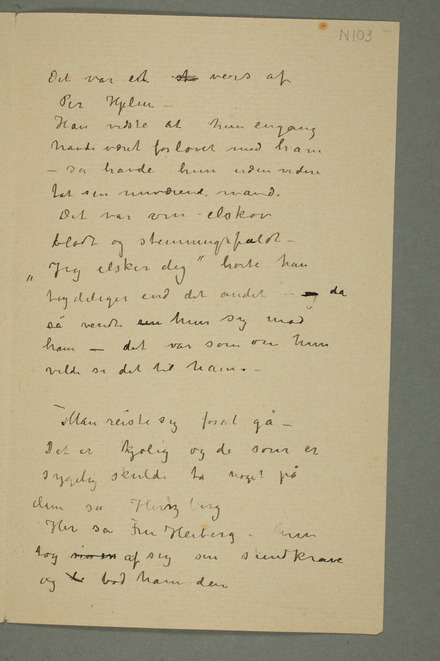 N103
Det var et vers af
Per Hjelm –
Han vidste at hun engang
havde været forlovet med ham
– så havde hun uden videre
tat sin nuværende mand.
Det var om elskov
blødt og stemningsfuldt –
„Jeg elsker dig" hørte han
tydeliger end det andet – og da
så vendte hun sig mod
ham – det var som om hun
vilde si det til ham. –
Man reiste sig forat gå –
Det er kjølig og de som er
sygelig skulde ta noget på
dem sa Herzberg
Her sa Fru Heiberg – hun
tog af sig sin skindkrave
og bød ham den